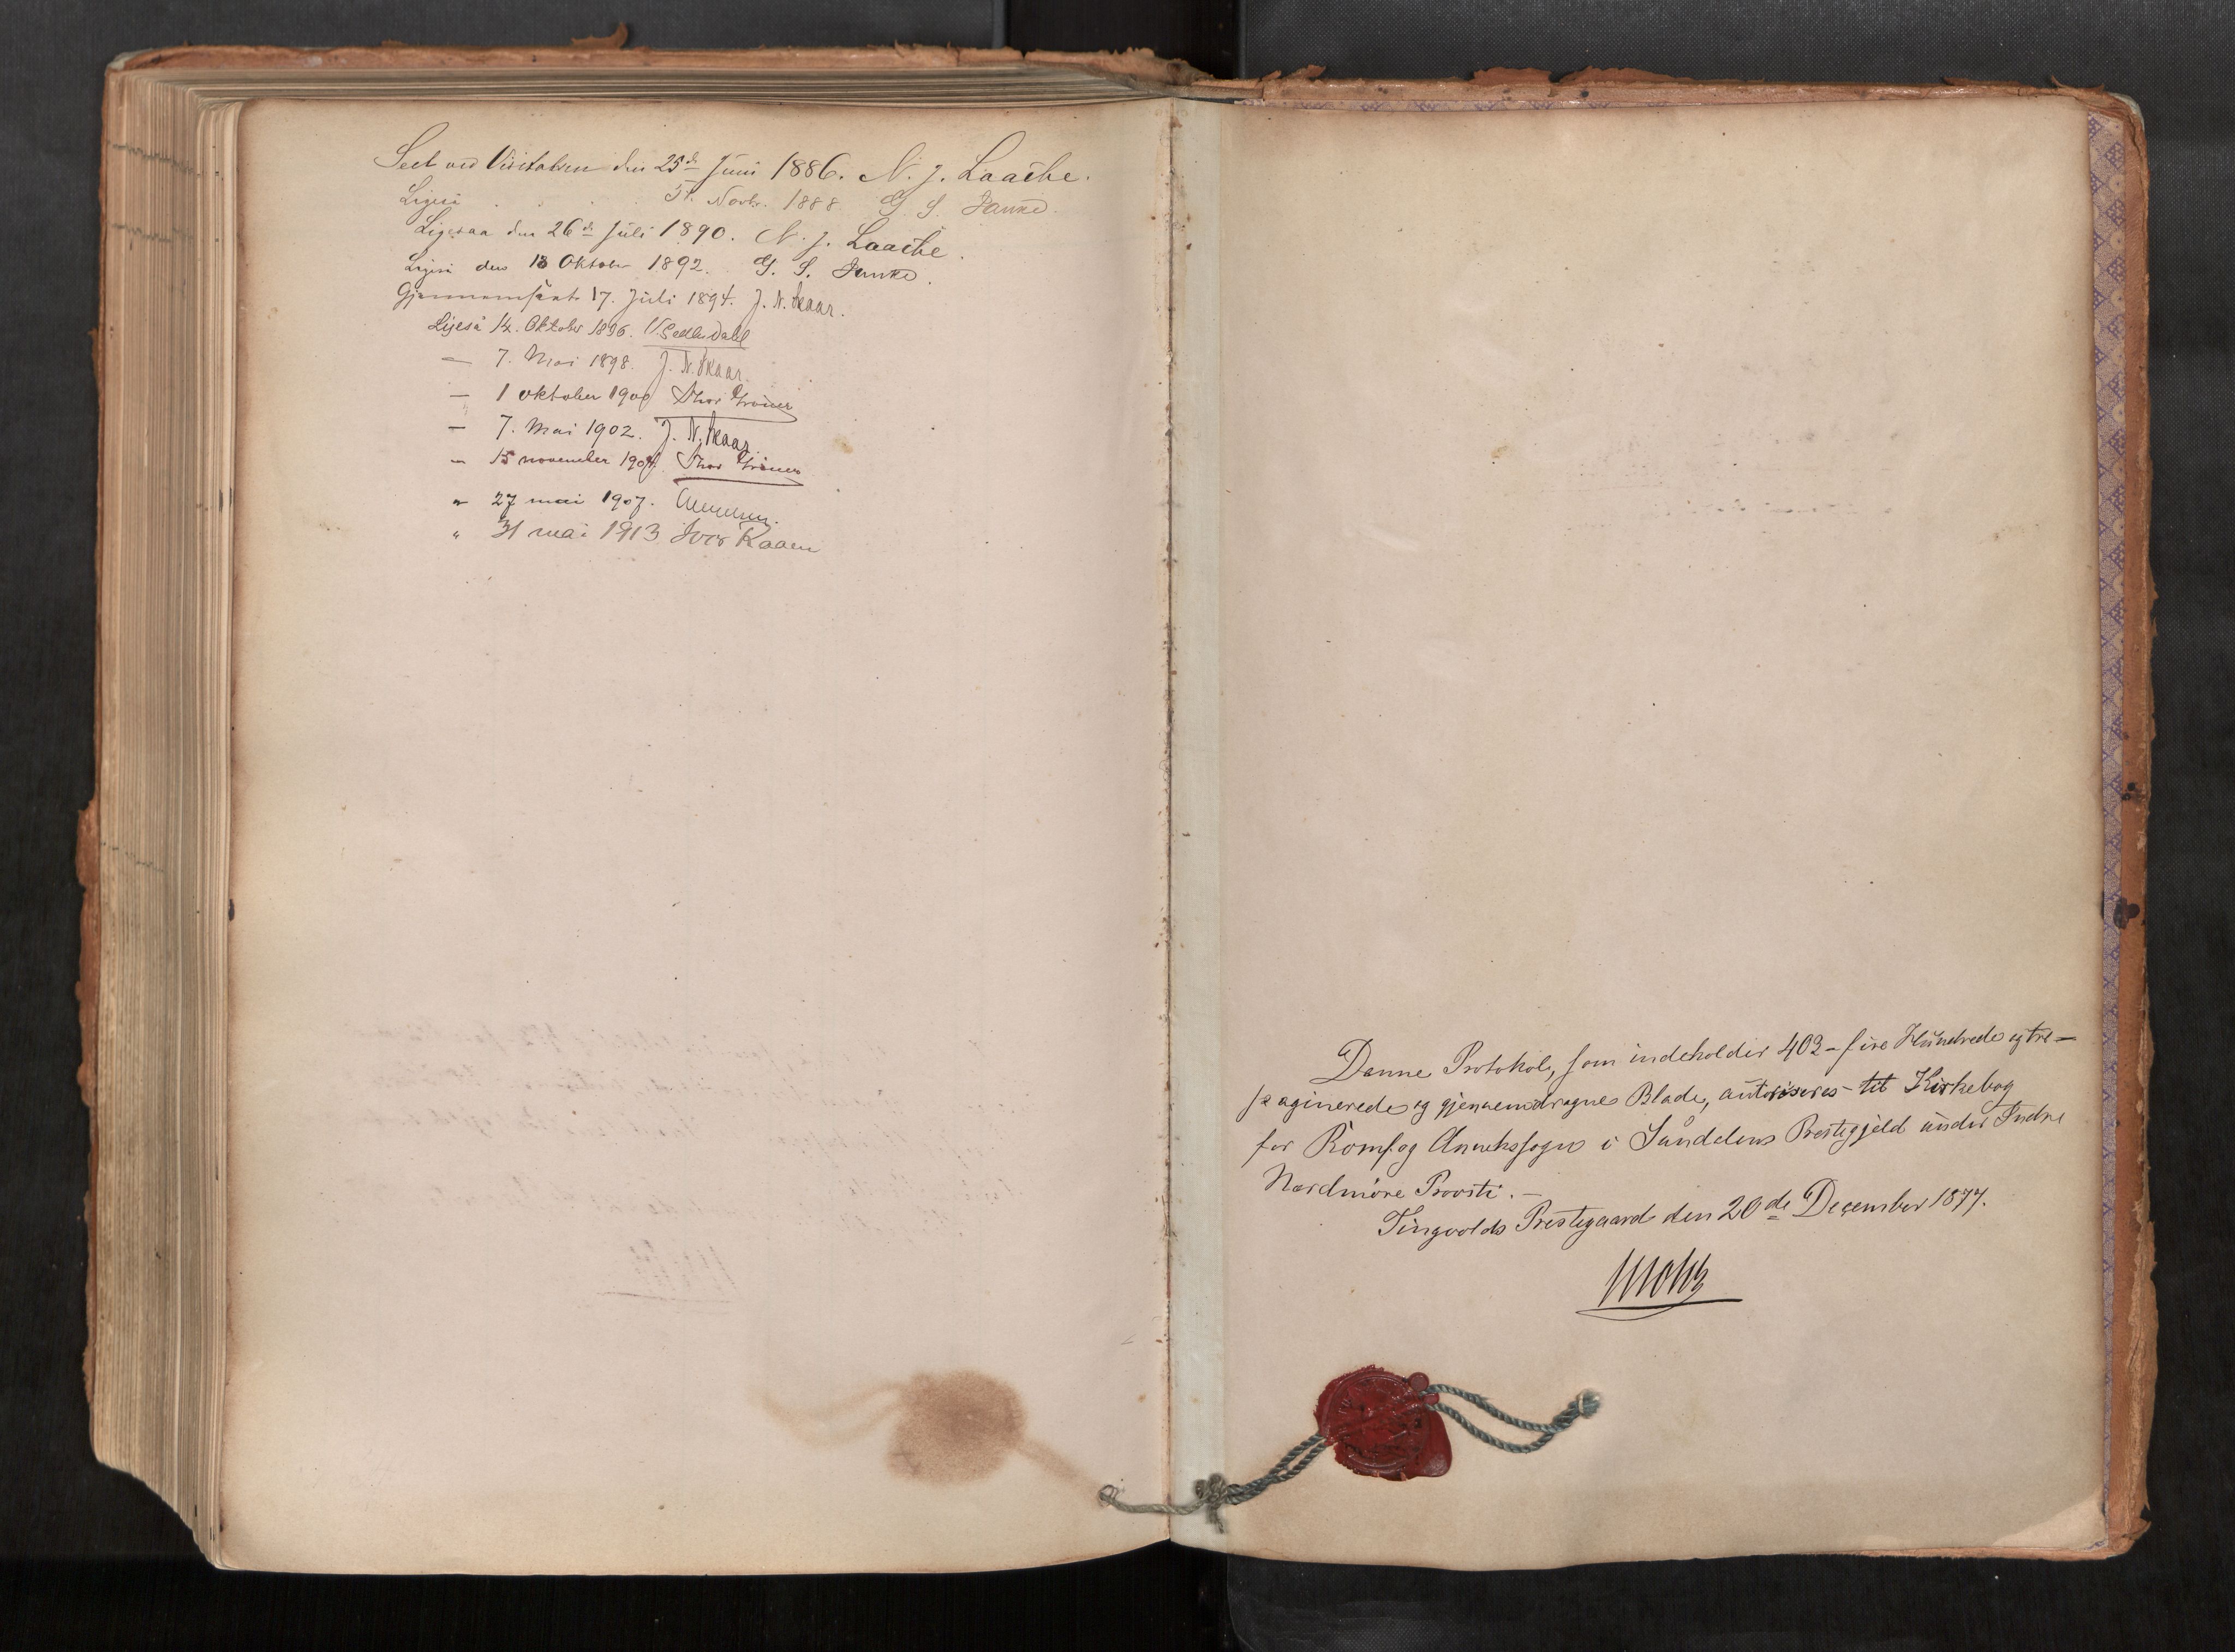 Seet ved Visitatsen den 25de Juni 1886. N. J. Laache.
Ligeså . . . Novbr. 1888 G. S. Janke.
Ligesaa den 26de Juli 1890. N. J. Laache.
Ligeså den 18 Oktober 1892. G. S. Janke.
Gjennemseet 17. Juli 1894. J. N. Skaar.
Ligeså 14. Oktober 1896.
— 7. Mai 1898. J. N. Skaar
— 1 oktober 1900 Thor Gröner
— 7. Mai 1902. J. N. Skaar
— 15 november 1904. Thor Gröner
" 27 mai 1907.
" 31 mai 1913 Ivor Raaen
Denne Protokol, som indeholder 403 - fire Hundrede og tre -
paginerede og gjennemdragne Blade, autoriseres til Kirkebog
for Romfog Annekssogn i Sundalens Prestegjeld under Indre
Nordmöre Provsti. —
Tingvolds Prestegaard den 20de December 1877.